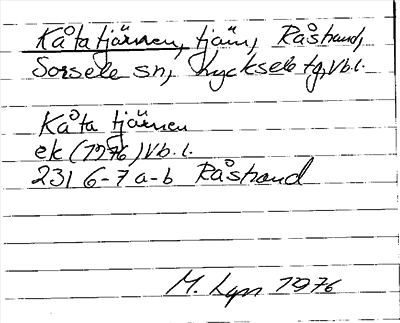 Kåtatjärnen, tjärn, Råstrand,
Sorsele sn, Lycksele tg, Vb.l.
Kåta tjärnen
ek (1976) Vb.l.
231 6-7 a-b Råstrand
M. 1976